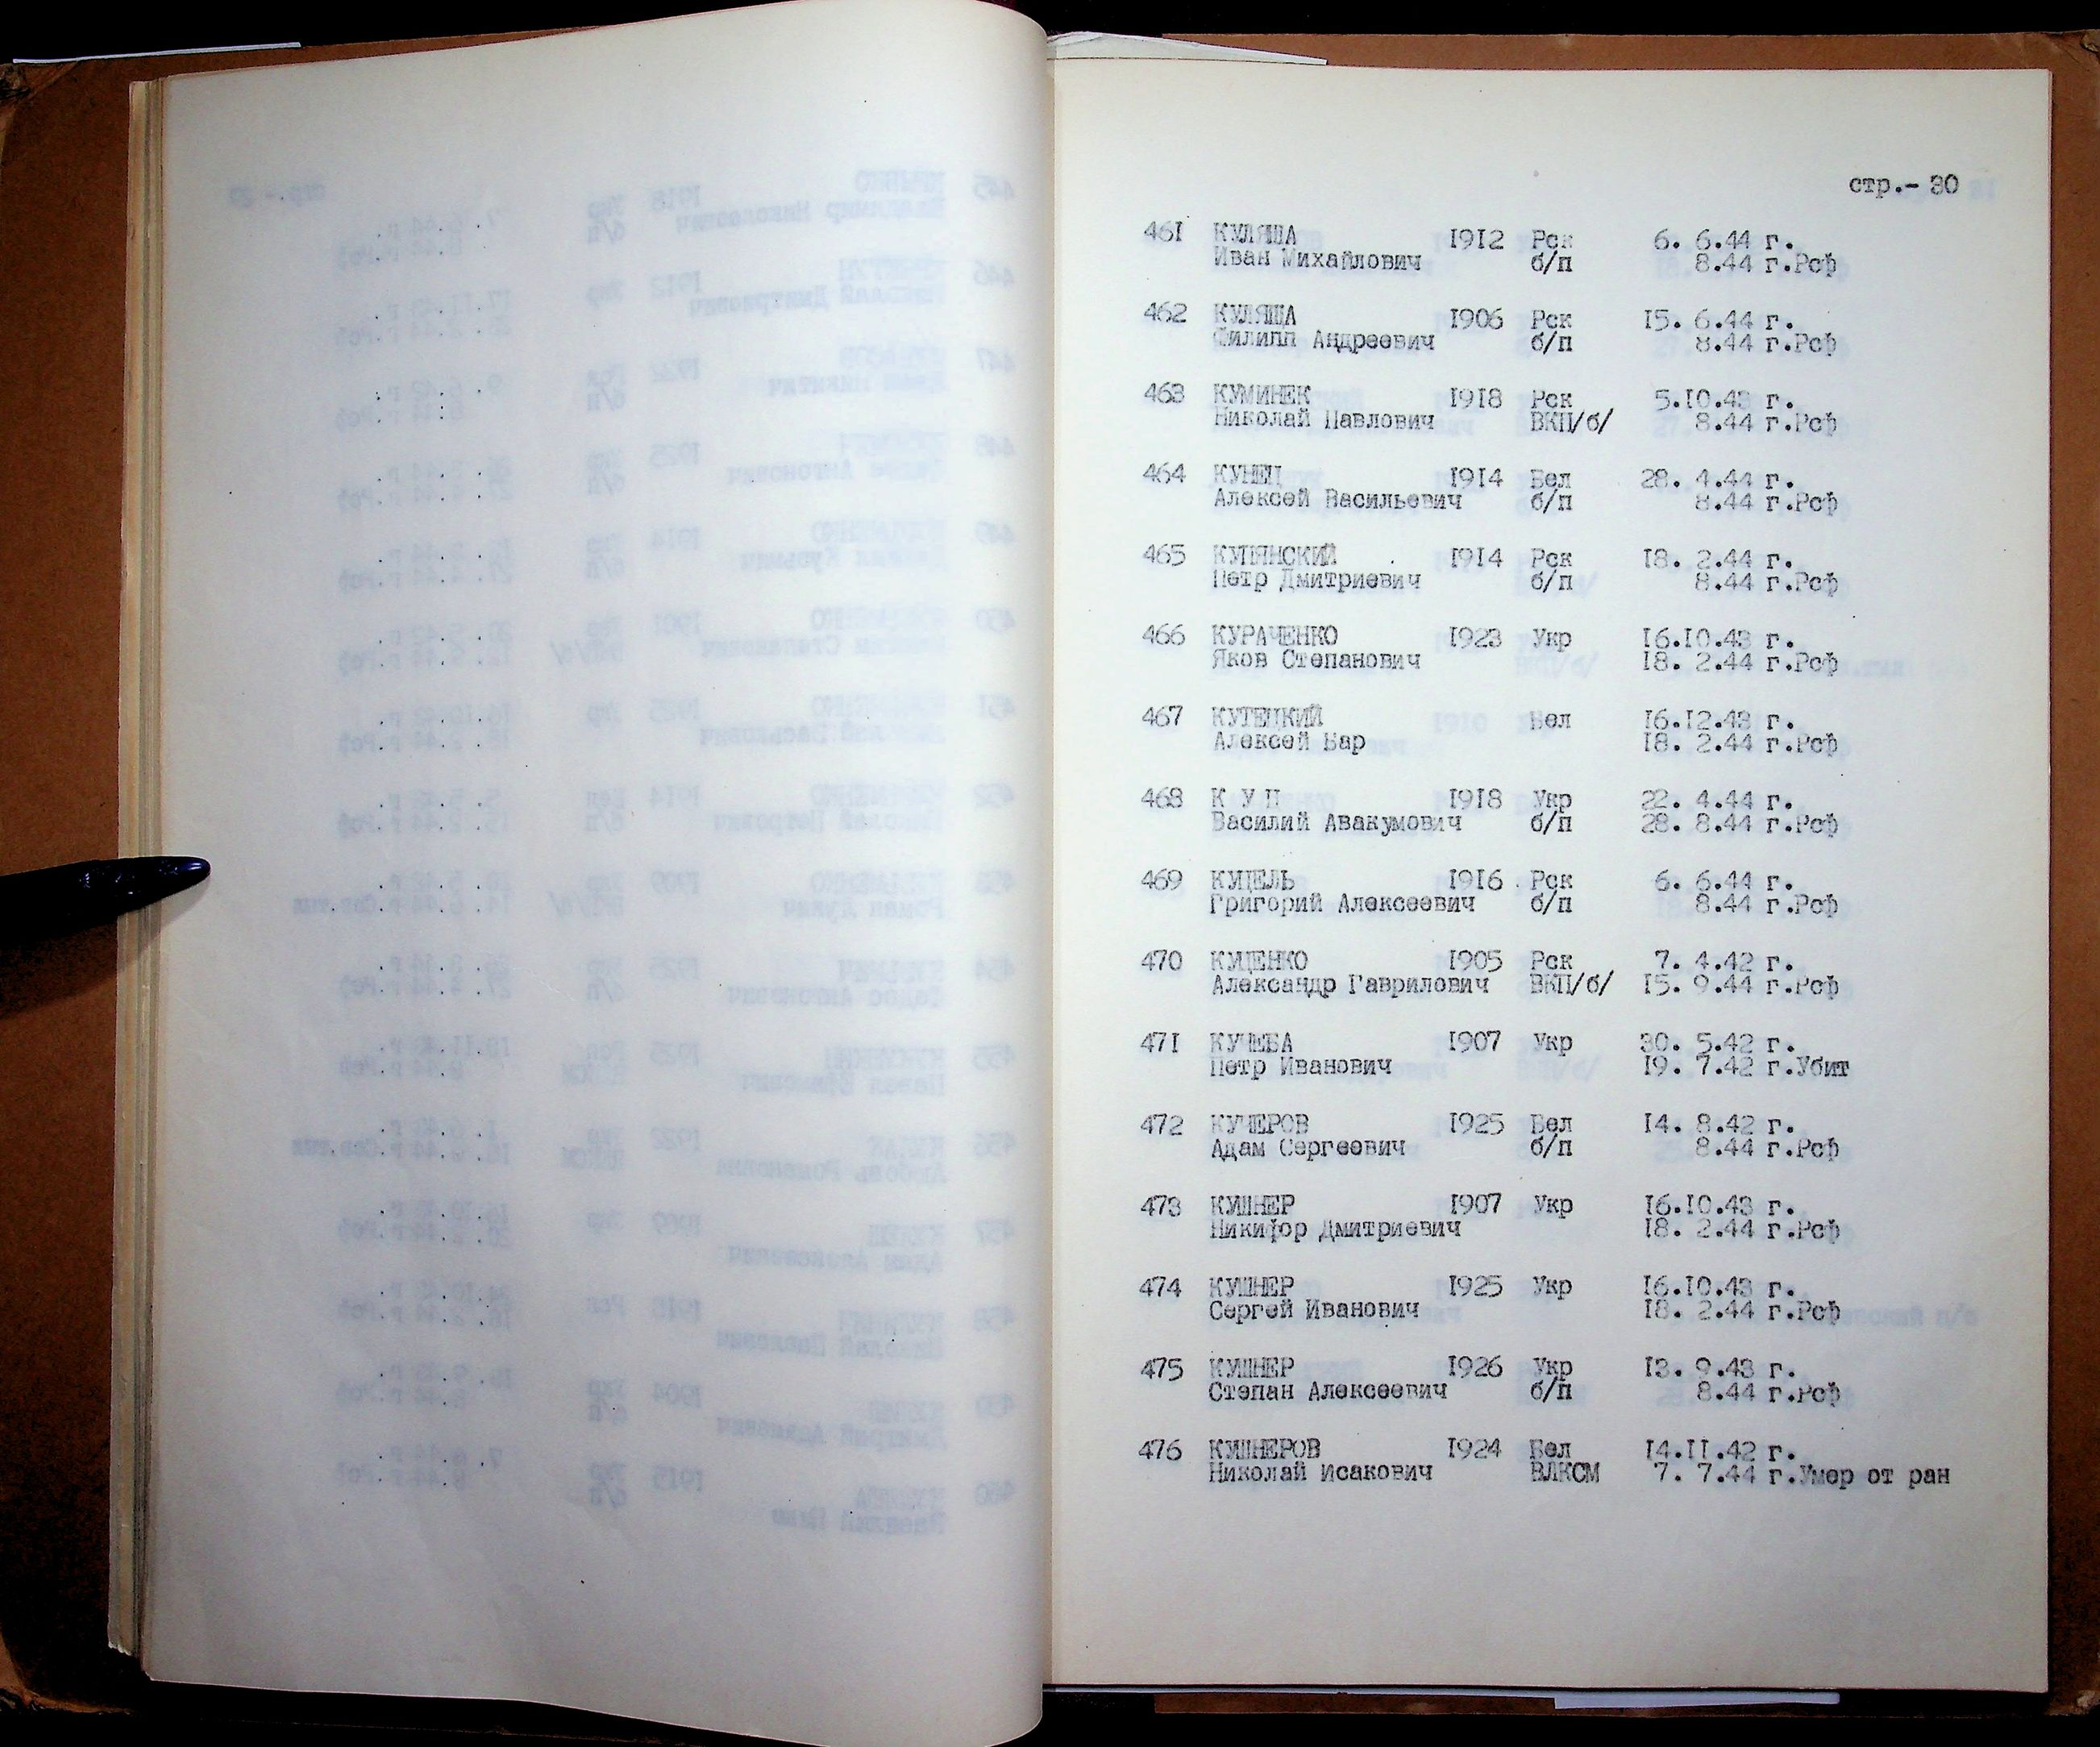 стр.- 30
461 КУЛЯША 1912 Рск 6. 6.44 г.
Иван Михайлович б/п 8.44 г.Рсф
462 КУЛЯША 1906 Рск 15. 6.44 г.
Филипп Андреевич б/п 8.44 г.Рсф
463 КУМИНЕК 1918 Рск 5.10.43 г.
Николай Павлович ВКП/б/ 8.44 г.Рсф
464 КУНЕЦ 1914 Бел 28. 4.44 г.
Алексей Васильевич б/п 8.44 г.Рсф
465 КУПЯНСКИЙ 1914 Рск 18. 2.44 г.
Петр Дмитриевич б/п 8.44 г.Рсф
466 КУРАЧЕНКО 1923 Укр 16.10.43 г.
Яков Степанович 18. 2.44 г.Рсф
467 КУТЕЦКИЙ Бел 16.12.43 г.
Алексей Вар 18. 2.44 г.Рсф
468 К У Ц 1918 Укр 22. 4.44 г.
Василий Авакумович б/п 28. 8.44 г.Рсф
469 КУЦЕЛЬ 1916 Рск 6. 6.44 г.
Григорий Алексеевич б/п 8.44 г.Рсф
470 КУЦЕНКО 1905 Рск 7. 4.42 г.
Александр Гаврилович ВКП/б/ 15. 9.44 г.Рсф
471 КУЧЕБА 1907 Укр 30. 5.42 г.
Петр Иванович 19. 7.42 г.Убит
472 КУЧЕРОВ 1925 Бел 14. 8.42 г.
Адам Сергеевич б/п 8.44 г.Рсф
473 КУШНЕР 1907 Укр 16.10.43 г.
Никифор Дмитриевич 18. 2.44 г.Рсф
474 КУШНЕР 1925 Укр 16.10.43 г.
Сергей Иванович 18. 2.44 г.Рсф
475 КУШНЕР 1926 Укр 13. 9.43 г.
Степан Алексеевич б/п 8.44 г.Рсф
476 КУШНЕРОВ 1924 Бел 14.11.42 г.
Николай Исакович ВЛКСМ 7. 7.44 г.Умер от ран